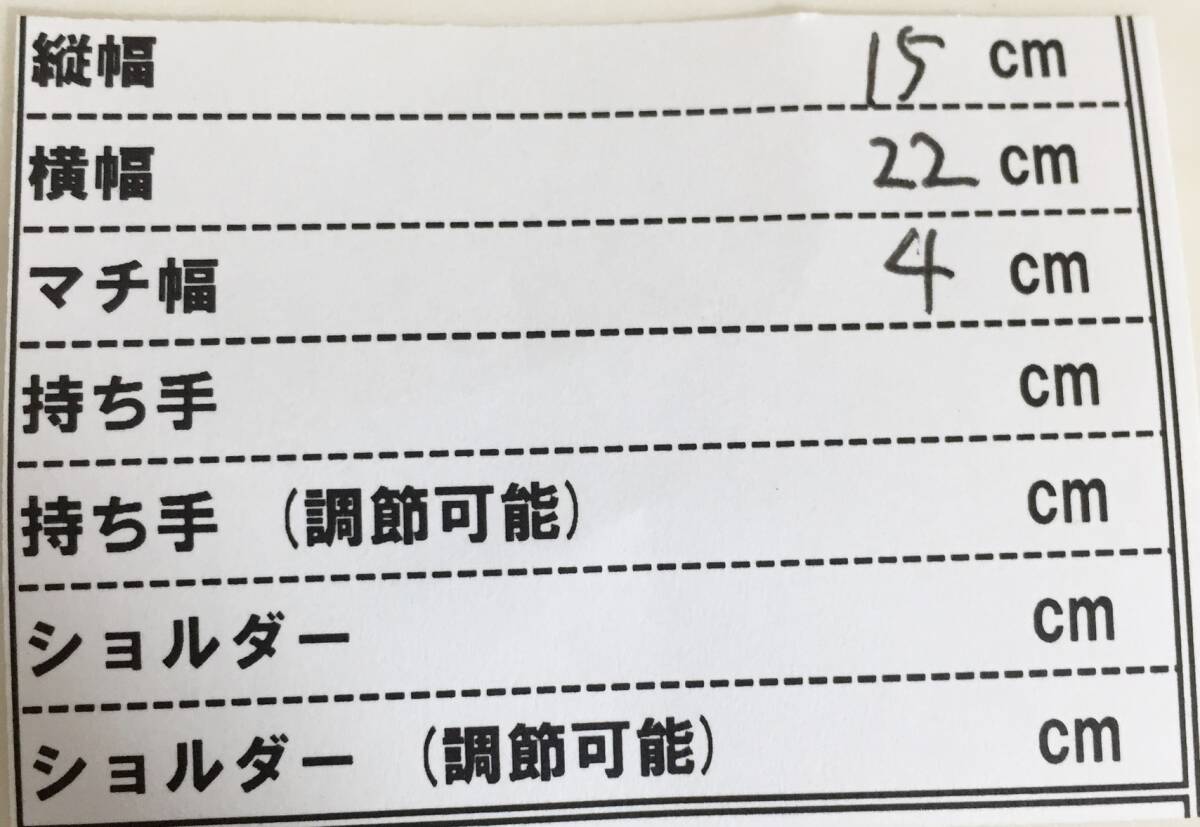 縦幅 15 cm
横幅 22 cm
マチ幅 4 cm
持ち手 cm
持ち手 (調節可能) cm
ショルダー cm
ショルダー (調節可能) cm